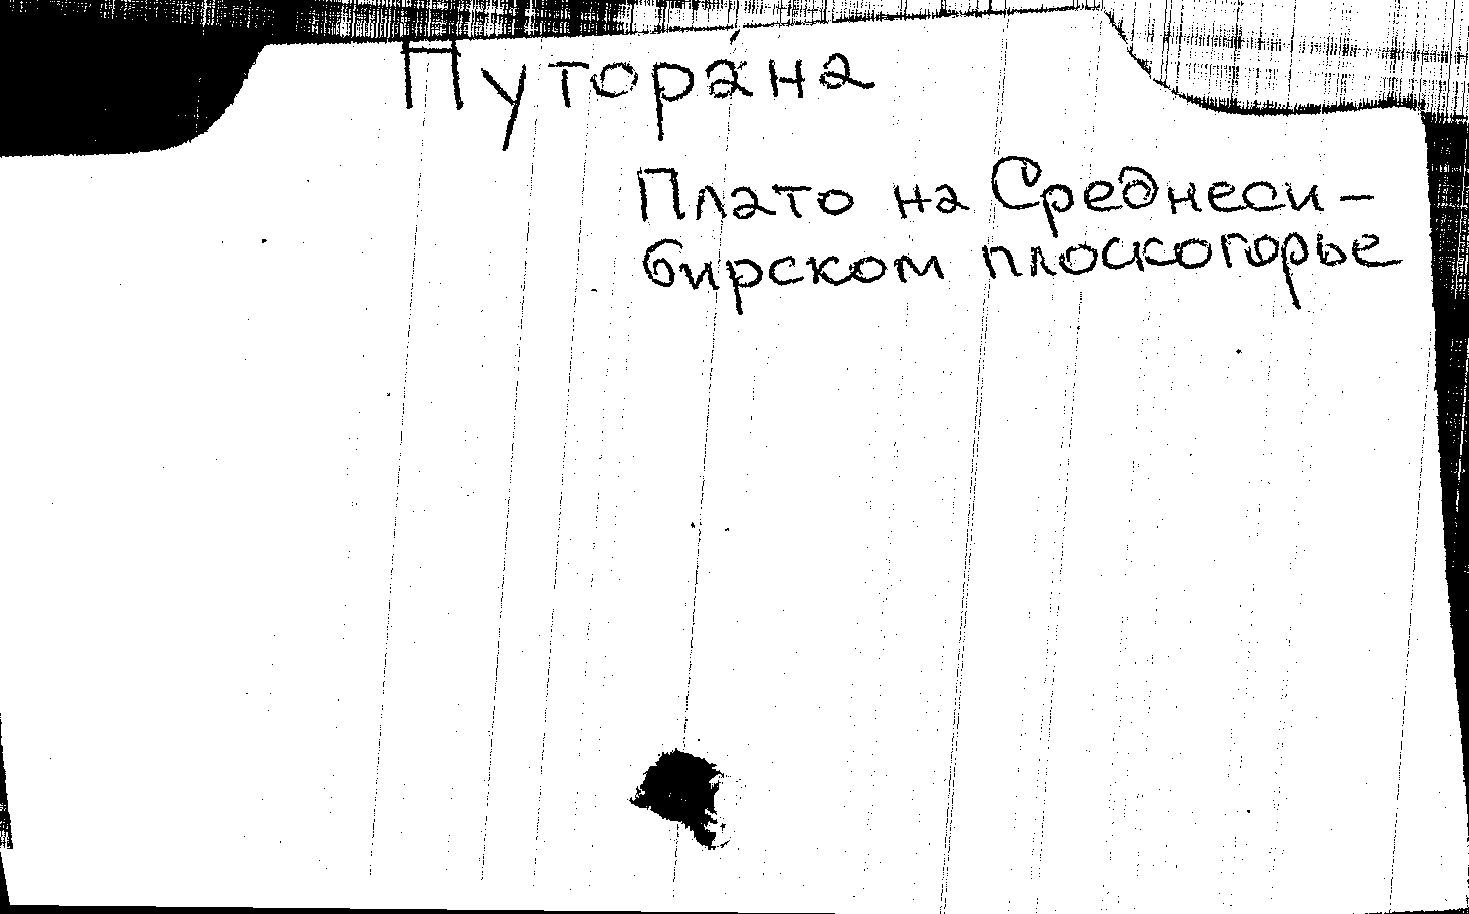 Путора́на
Плато на Среднеси-
бирском плоскогорье